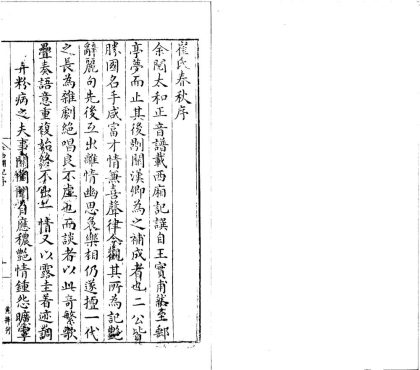 崔氏春秋序
余閱太和正音譜載西廂記譔自王實甫然至郵
亭夢而止其後則關漢卿為之補成者也二公皆
勝國名手咸富才情兼喜聲律今觀其所為記艷
辭麗句先後互出離情幽思哀樂相仍遂擅一代
之長為雜劇絕唱良不虛也而談者以此奇繁歌
疊奏語意重複始終不出一情又以露圭著迹調
弄粉病之夫事關閨閫自應穠艷情鍾怨曠寧